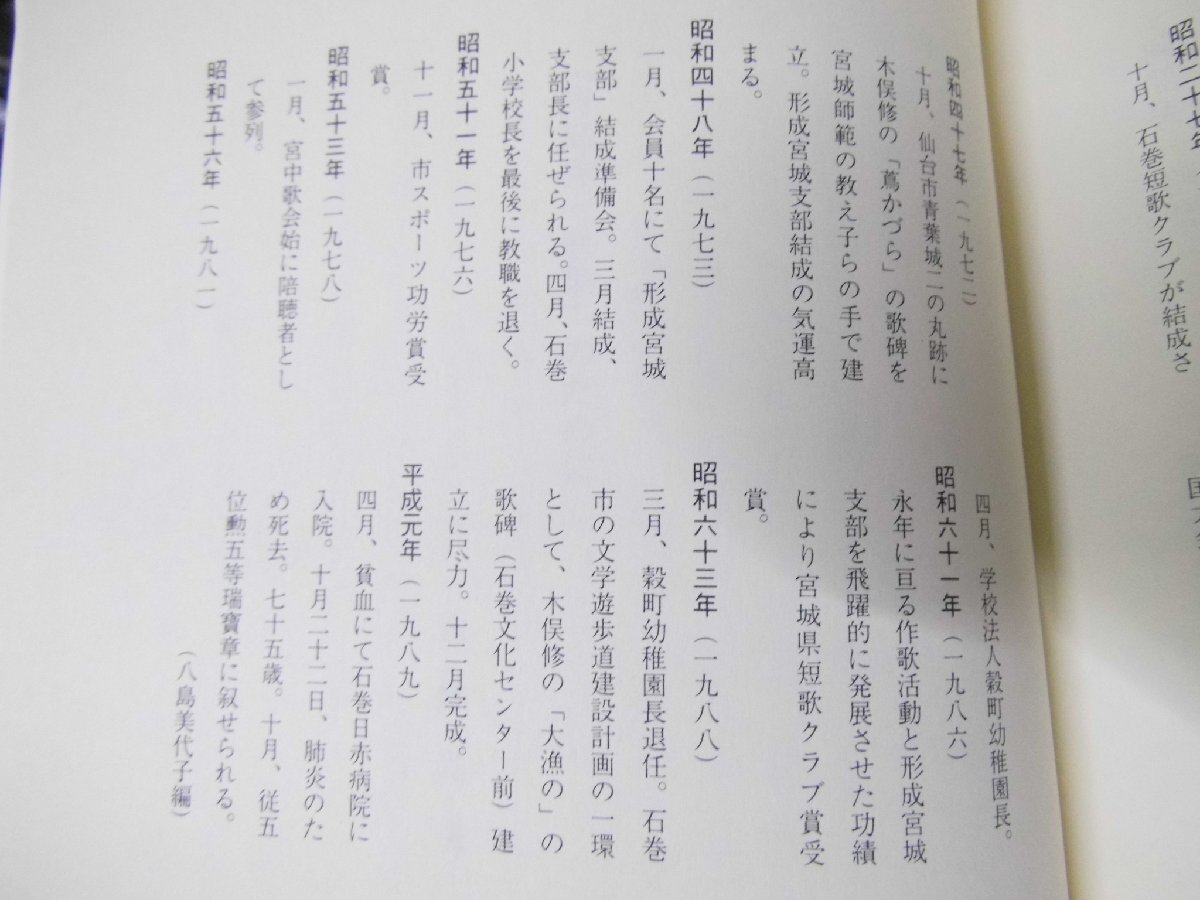 昭和二十七年
十月、石巻短歌クラブが結成さ
昭和四十七年（一九七二）
十月、仙台市青葉城二の丸跡に
木俣修の「蔦かづら」の歌碑を
宮城師範の教え子らの手で建
立。形成宮城支部結成の気運高
まる。
昭和四十八年（一九七三）
一月、会員十名にて「形成宮城
支部」結成準備会。三月結成、
支部長に任ぜられる。四月、石巻
小学校長を最後に教職を退く。
昭和五十一年（一九七六）
十一月、市スポーツ功労賞受
賞。
昭和五十三年（一九七八）
一月、宮中歌会始に陪聴者とし
て参列。
昭和五十六年（一九八一）
四月、学校法人穀町幼稚園長。
昭和六十一年（一九八六）
永年に亘る作歌活動と形成宮城
支部を飛躍的に発展させた功績
により宮城県短歌クラブ賞受
賞。
昭和六十三年（一九八八）
三月、穀町幼稚園長退任。石巻
市の文学遊歩道建設計画の一環
として、木俣修の「大漁の」の
歌碑（石巻文化センター前）建
立に尽力。十二月完成。
平成元年（一九八九）
四月、貧血にて石巻日赤病院に
入院。十月二十二日、肺炎のた
め死去。七十五歳。十月、従五
位勲五等瑞寶章に叙せられる。
（八島美代子編）